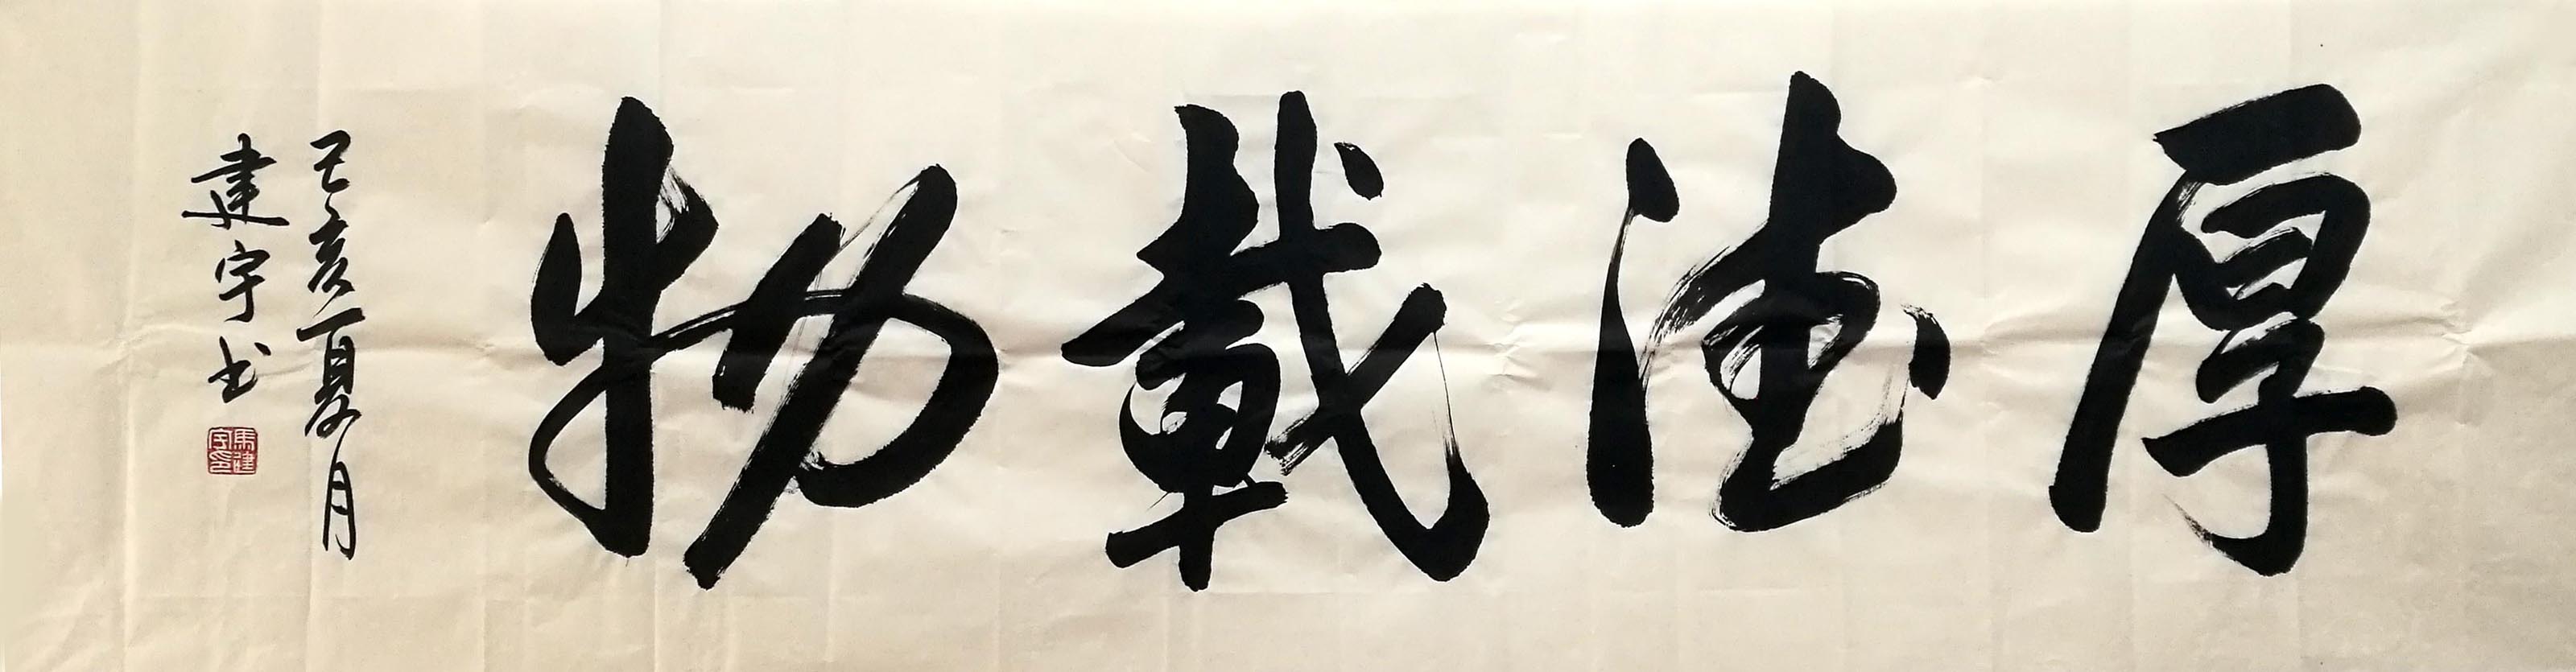 厚德載物
己亥夏月
建宇书
馬建宇印